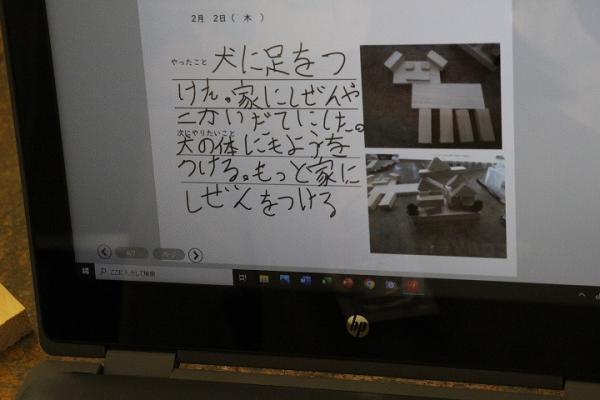 2月 2日( 木 )
やったこと 犬に足をつ
けた。家にしぜんや
二かいだてにした。
次にやりたいこと
犬の体にもようを
つける。もっと家に
しぜんをつける
ここに入力して検索
hp